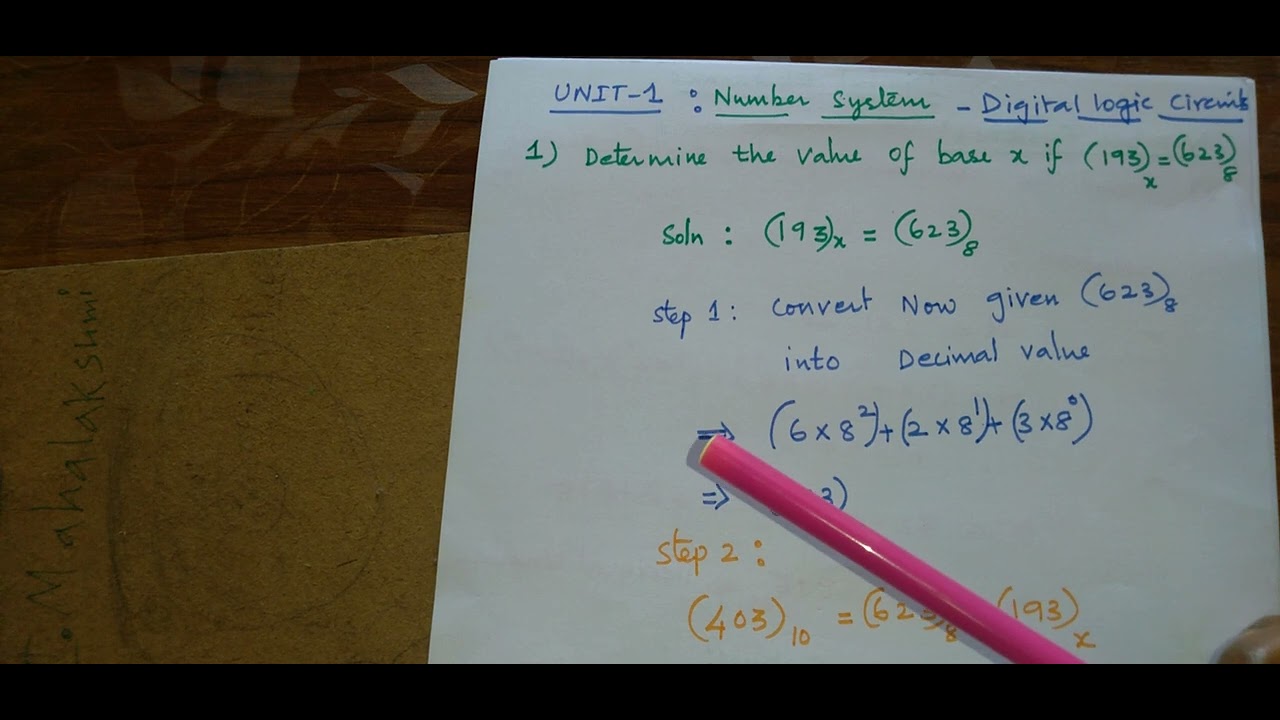 UNIT-1 : Number System - Digital logic Circuits
1) Determine the value of base x if (193)x = (623)8
Soln : (193)x = (623)8
step 1: convert Now given (623)8
into Decimal value
⇒ (6 × 8²) + (2 × 8¹) + (3 × 8⁰)
⇒ 3)
step 2 :
(403)10 = (623)8 (193)x
T. Mahalakshmi